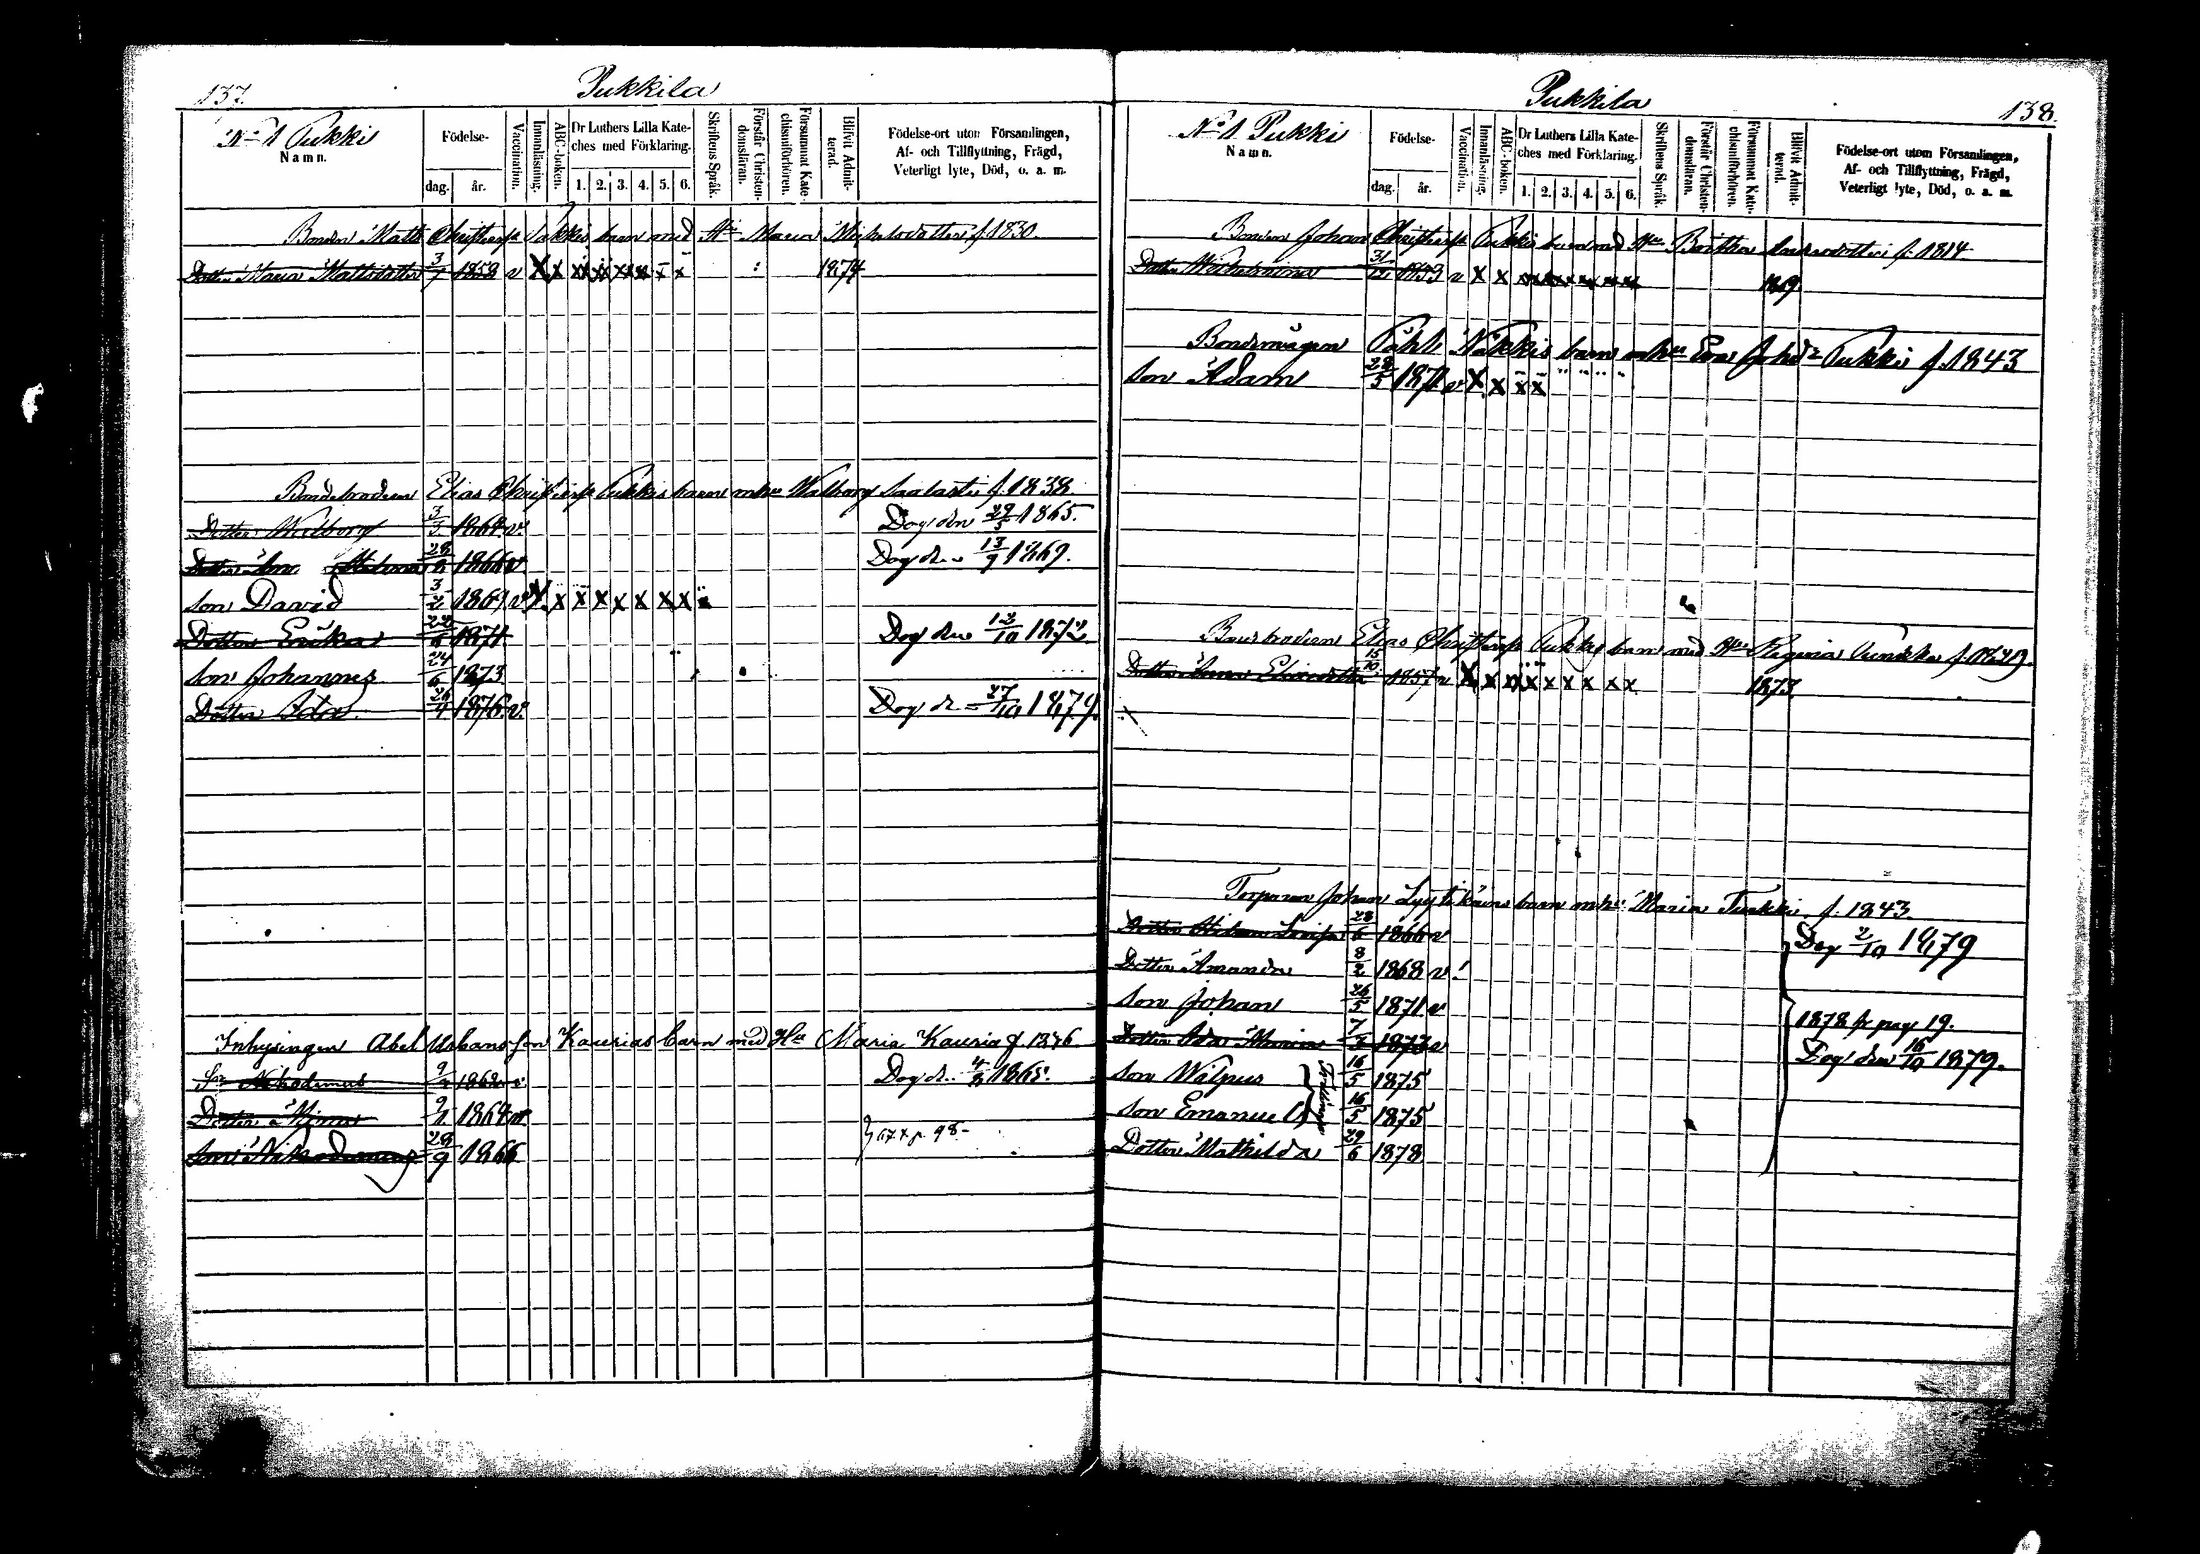 137.
Pukkila
No 1 Pukki
Namn.
Födelse-
dag. år.
Vaccination.
Innanläsning.
ABC-boken.
Dr Luthers Lilla Kate-
ches med Förklaring.
1. 2. 3. 4. 5. 6.
Skriftens Språk.
Förstår Christen-
domsläran.
Försummat Kate-
chismiförhören.
Blifvit Admit-
terad.
Födelse-ort utom Församlingen,
Af- och Tillflyttning, Frägd,
Veterligt lyte, Död, o. a. m.
Bonden Matts Pukkis barn med Hu Maria Mickelsdotter f. 1830.
Dotter Maria Mattsdotter 3/1 1858 v x x x x x x x x 1874
Bondebrodren Elias Pukkis barn m hu Walborg f. 1838.
Dotter Walborg 3/3 1864 v. Dog den 29/5 1865.
Dotter 1866 v Dog d. 13/9 1869.
Son David 3/2 1869 v x x x x x x x x
Dotter Erika 1871 Dog den 12/10 1872
Son Johannes 24/6 1873
Dotter Ida 26/4 1876 v. Dog d. 27/10 1879.
Inhysingen Abel Urbansson Kaurias barn med Hu Maria Kauria f
Sn Nikodemus 1862 v Dog d. 4/8 1865.
Dotter 1864 v
Son Nikodemus 28/9 1866
p. 98-
Pukkila
138.
No 1. Pukki
Namn.
Födelse-
dag. år.
Vaccination.
Innanläsning.
ABC-boken.
Dr Luthers Lilla Kate-
ches med Förklaring.
1. 2. 3. 4. 5. 6.
Skriftens Språk.
Förstår Christen-
domsläran.
Försummat Kate-
chismiförhören.
Blifvit Admit-
terad.
Födelse-ort utom Församlingen,
Af- och Tillflyttning, Frägd,
Veterligt lyte, Död, o. a. m.
Bonden Johan Pukkis barn med Hu f. 1814
Dotter Wilhelmina 31/12 1853 v x x x x x x x x 1869
Bondemågen Påhl Nakkis barn m hu Eva Pukki f. 1843
Son Adam 28/5 1871 v x x x x
Elias Pukkis barn med Hu Regina
Dotter Anna 15/10 1857 v x x x x x x x x 1873
Torparen Johan Lyytikäins barn m hu Maria f. 1843
Dotter 28/6 1866 v Dog 2/10 1879
Dotter Amanda 8/2 1868 v
Son Johan 26/5 1871 v
Dotter Ida Maria 1873 v 1878 fr pag 19.
Son 16/5 1875 Dog den 16/10 1879.
Son Emanuel 16/5 1875
Tvillingar
Dotter Mathilda 29/6 1878